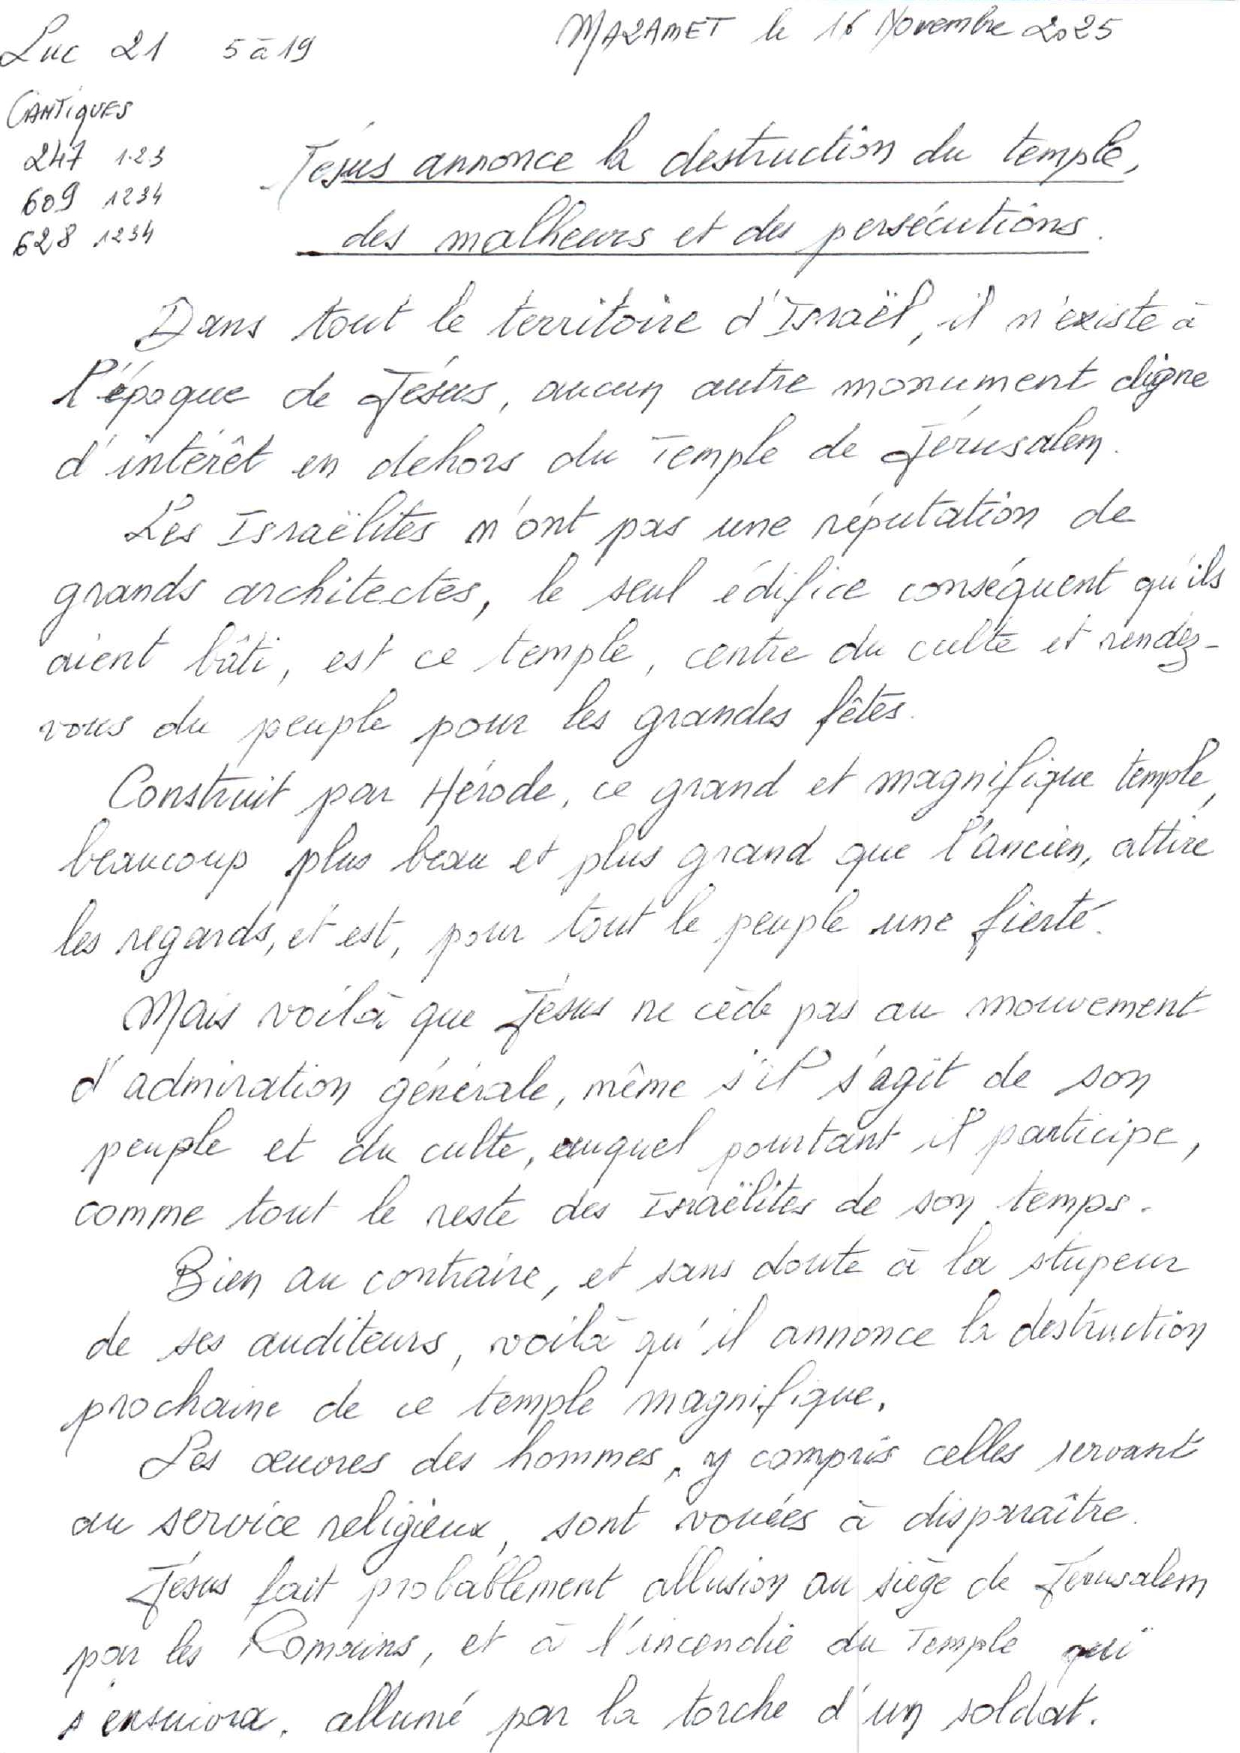 Luc 21 5 à 19
MAZAMET le 16 Novembre 2025
CANTIQUES
247 1.2.3
609 1234
628 1234
Jésus annonce la destruction du temple,
des malheurs et des persécutions.
Dans tout le territoire d'Israël, il n'existe à
l'époque de Jésus, aucun autre monument digne
d'intérêt en dehors du Temple de Jérusalem.
Les Israëlites n'ont pas une réputation de
grands architectes, le seul édifice conséquent qu'ils
aient bâti, est ce temple, centre du culte et rendez-
vous du peuple pour les grandes fêtes.
Construit par Hérode, ce grand et magnifique temple,
beaucoup plus beau et plus grand que l'ancien, attire
les regards, et est, pour tout le peuple une fierté.
Mais voilà que Jésus ne cède pas au mouvement
d'admiration générale, même s'il s'agit de son
peuple et du culte, auquel pourtant il participe,
comme tout le reste des Israëlites de son temps.
Bien au contraire, et sans doute à la stupeur
de ses auditeurs, voilà qu'il annonce la destruction
prochaine de ce temple magnifique.
Les œuvres des hommes, y compris celles servant
au service religieux, sont vouées à disparaître.
Jésus fait probablement allusion au siège de Jérusalem
par les Romains, et à l'incendie du Temple qui
s'ensuivra, allumé par la torche d'un soldat.